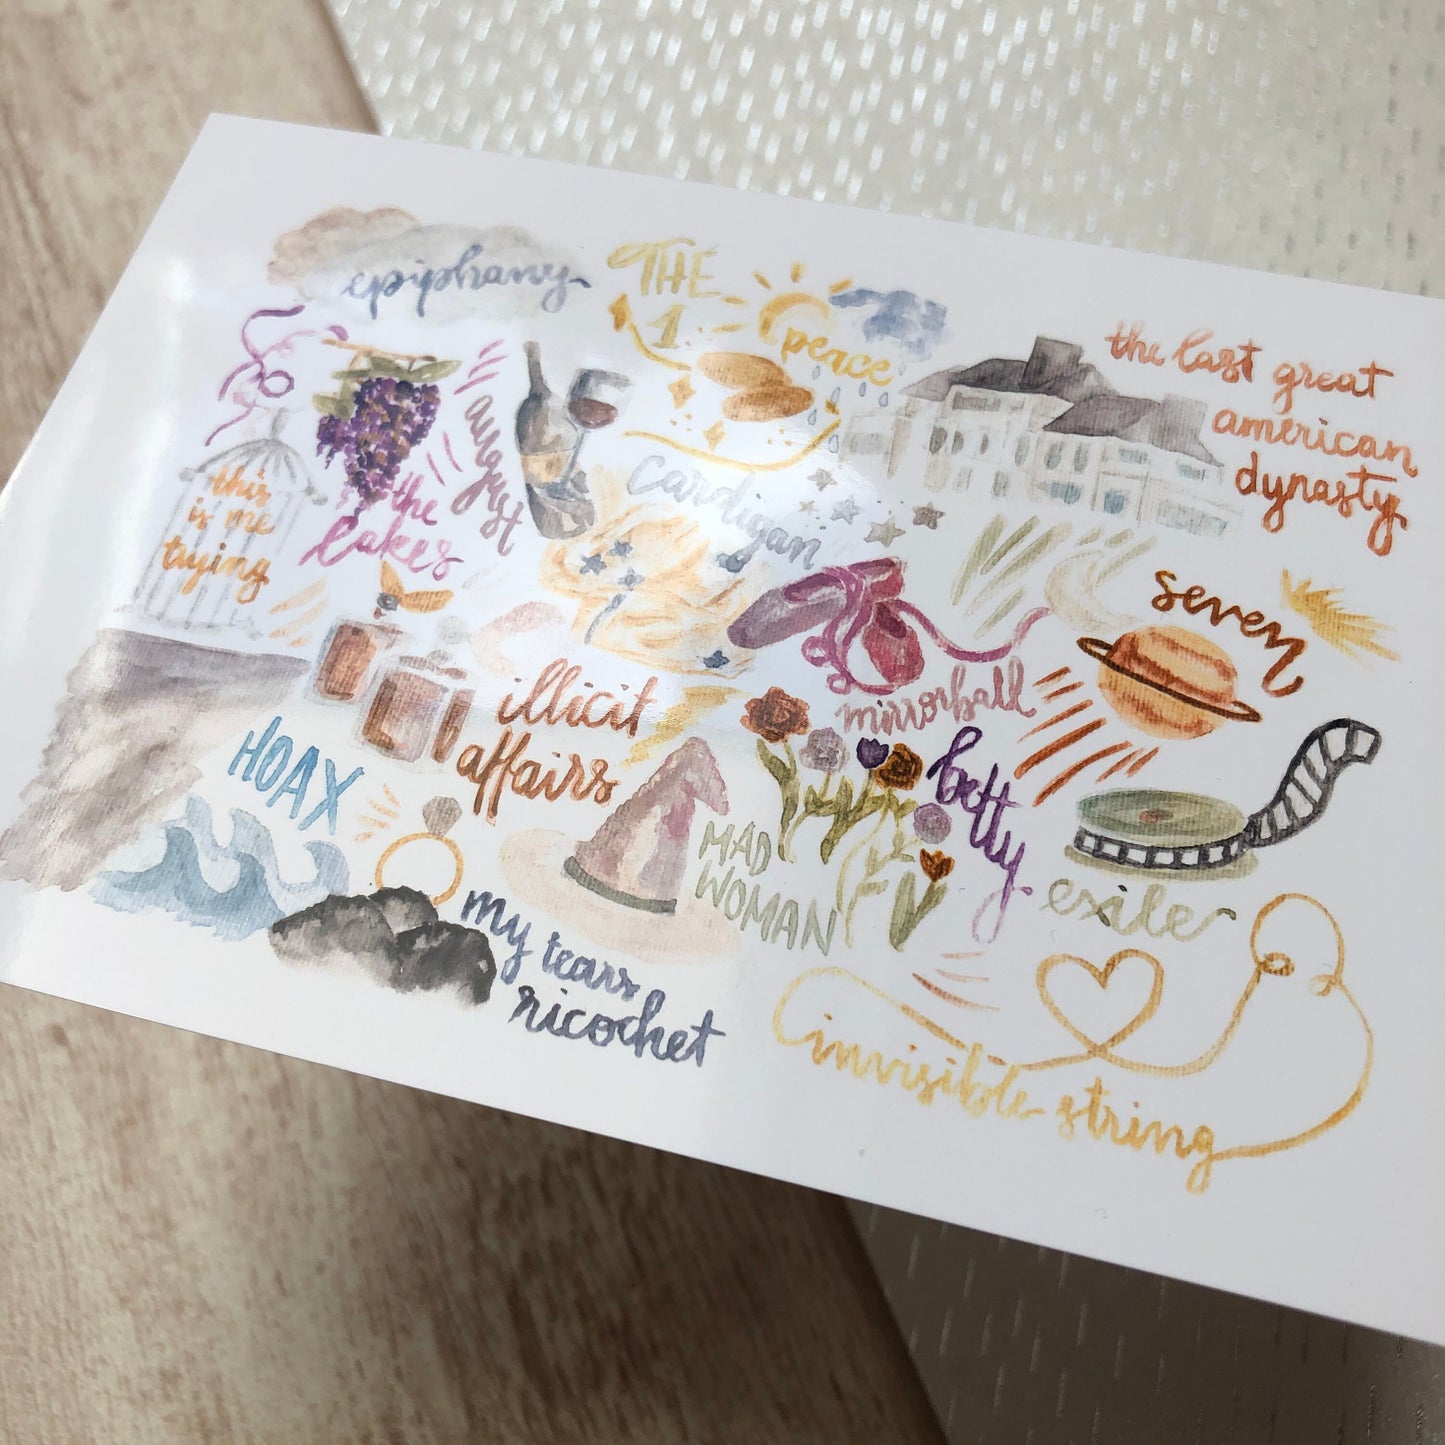 epiphany
THE
1
peace
the last great
american
dynasty
this
is me
trying
the
lakes
august
cardigan
seven
mirrorball
illicit
affairs
HOAX
betty
MAD
WOMAN
exile
my tears
ricochet
invisible string